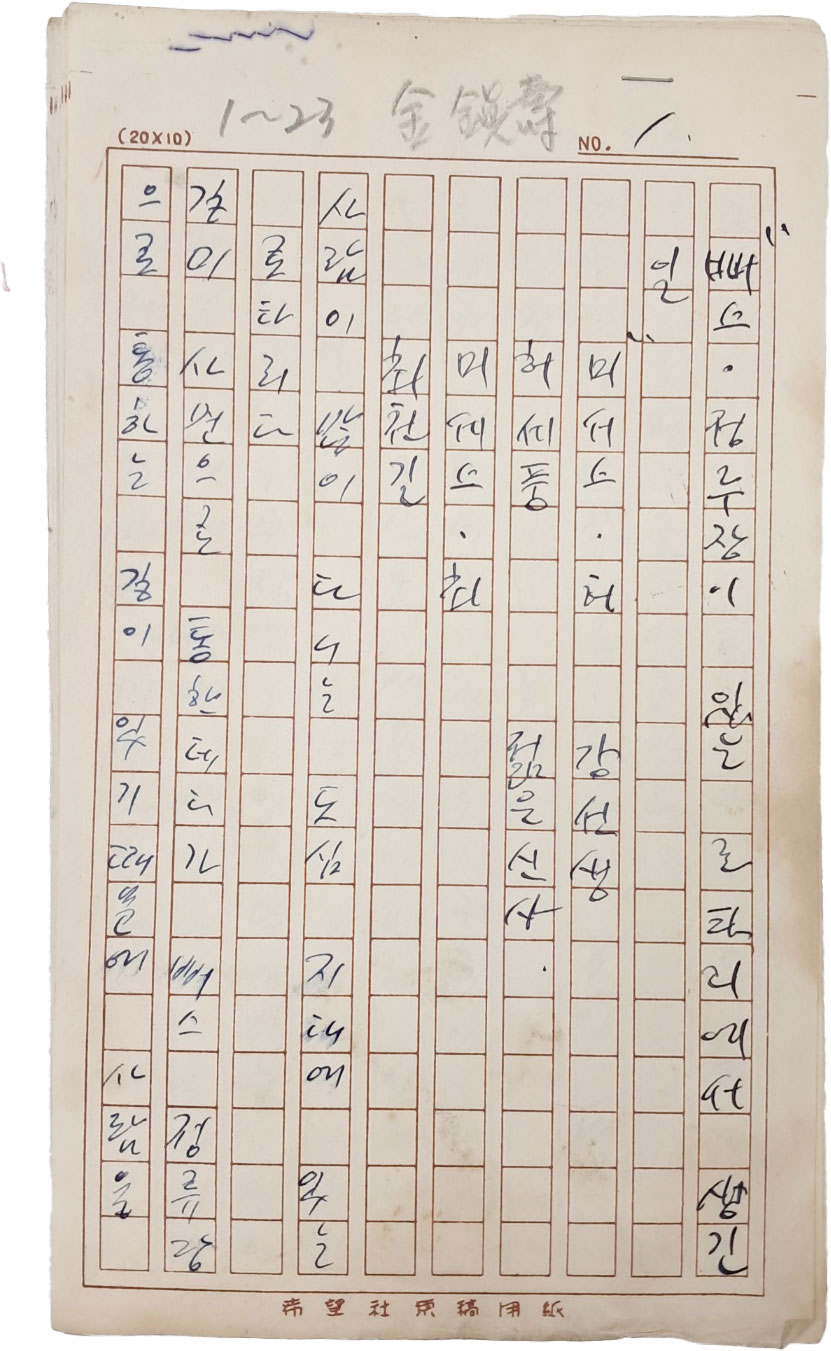 (20X10)
1~23 金鎭壽
NO. 1.
"뻐스·정류장이 있는 로타리에서 생긴
일"
미세스·허 강선생
허세풍 젊은신사.
미세스·최
최천길
사람이 많이 다니는 도심 지대에 있는
로타리다
길이 사면으로 통한데다가 뻐스 정류장
으로 통하는 길이 있기 때문에 사람은
希望社原稿用紙